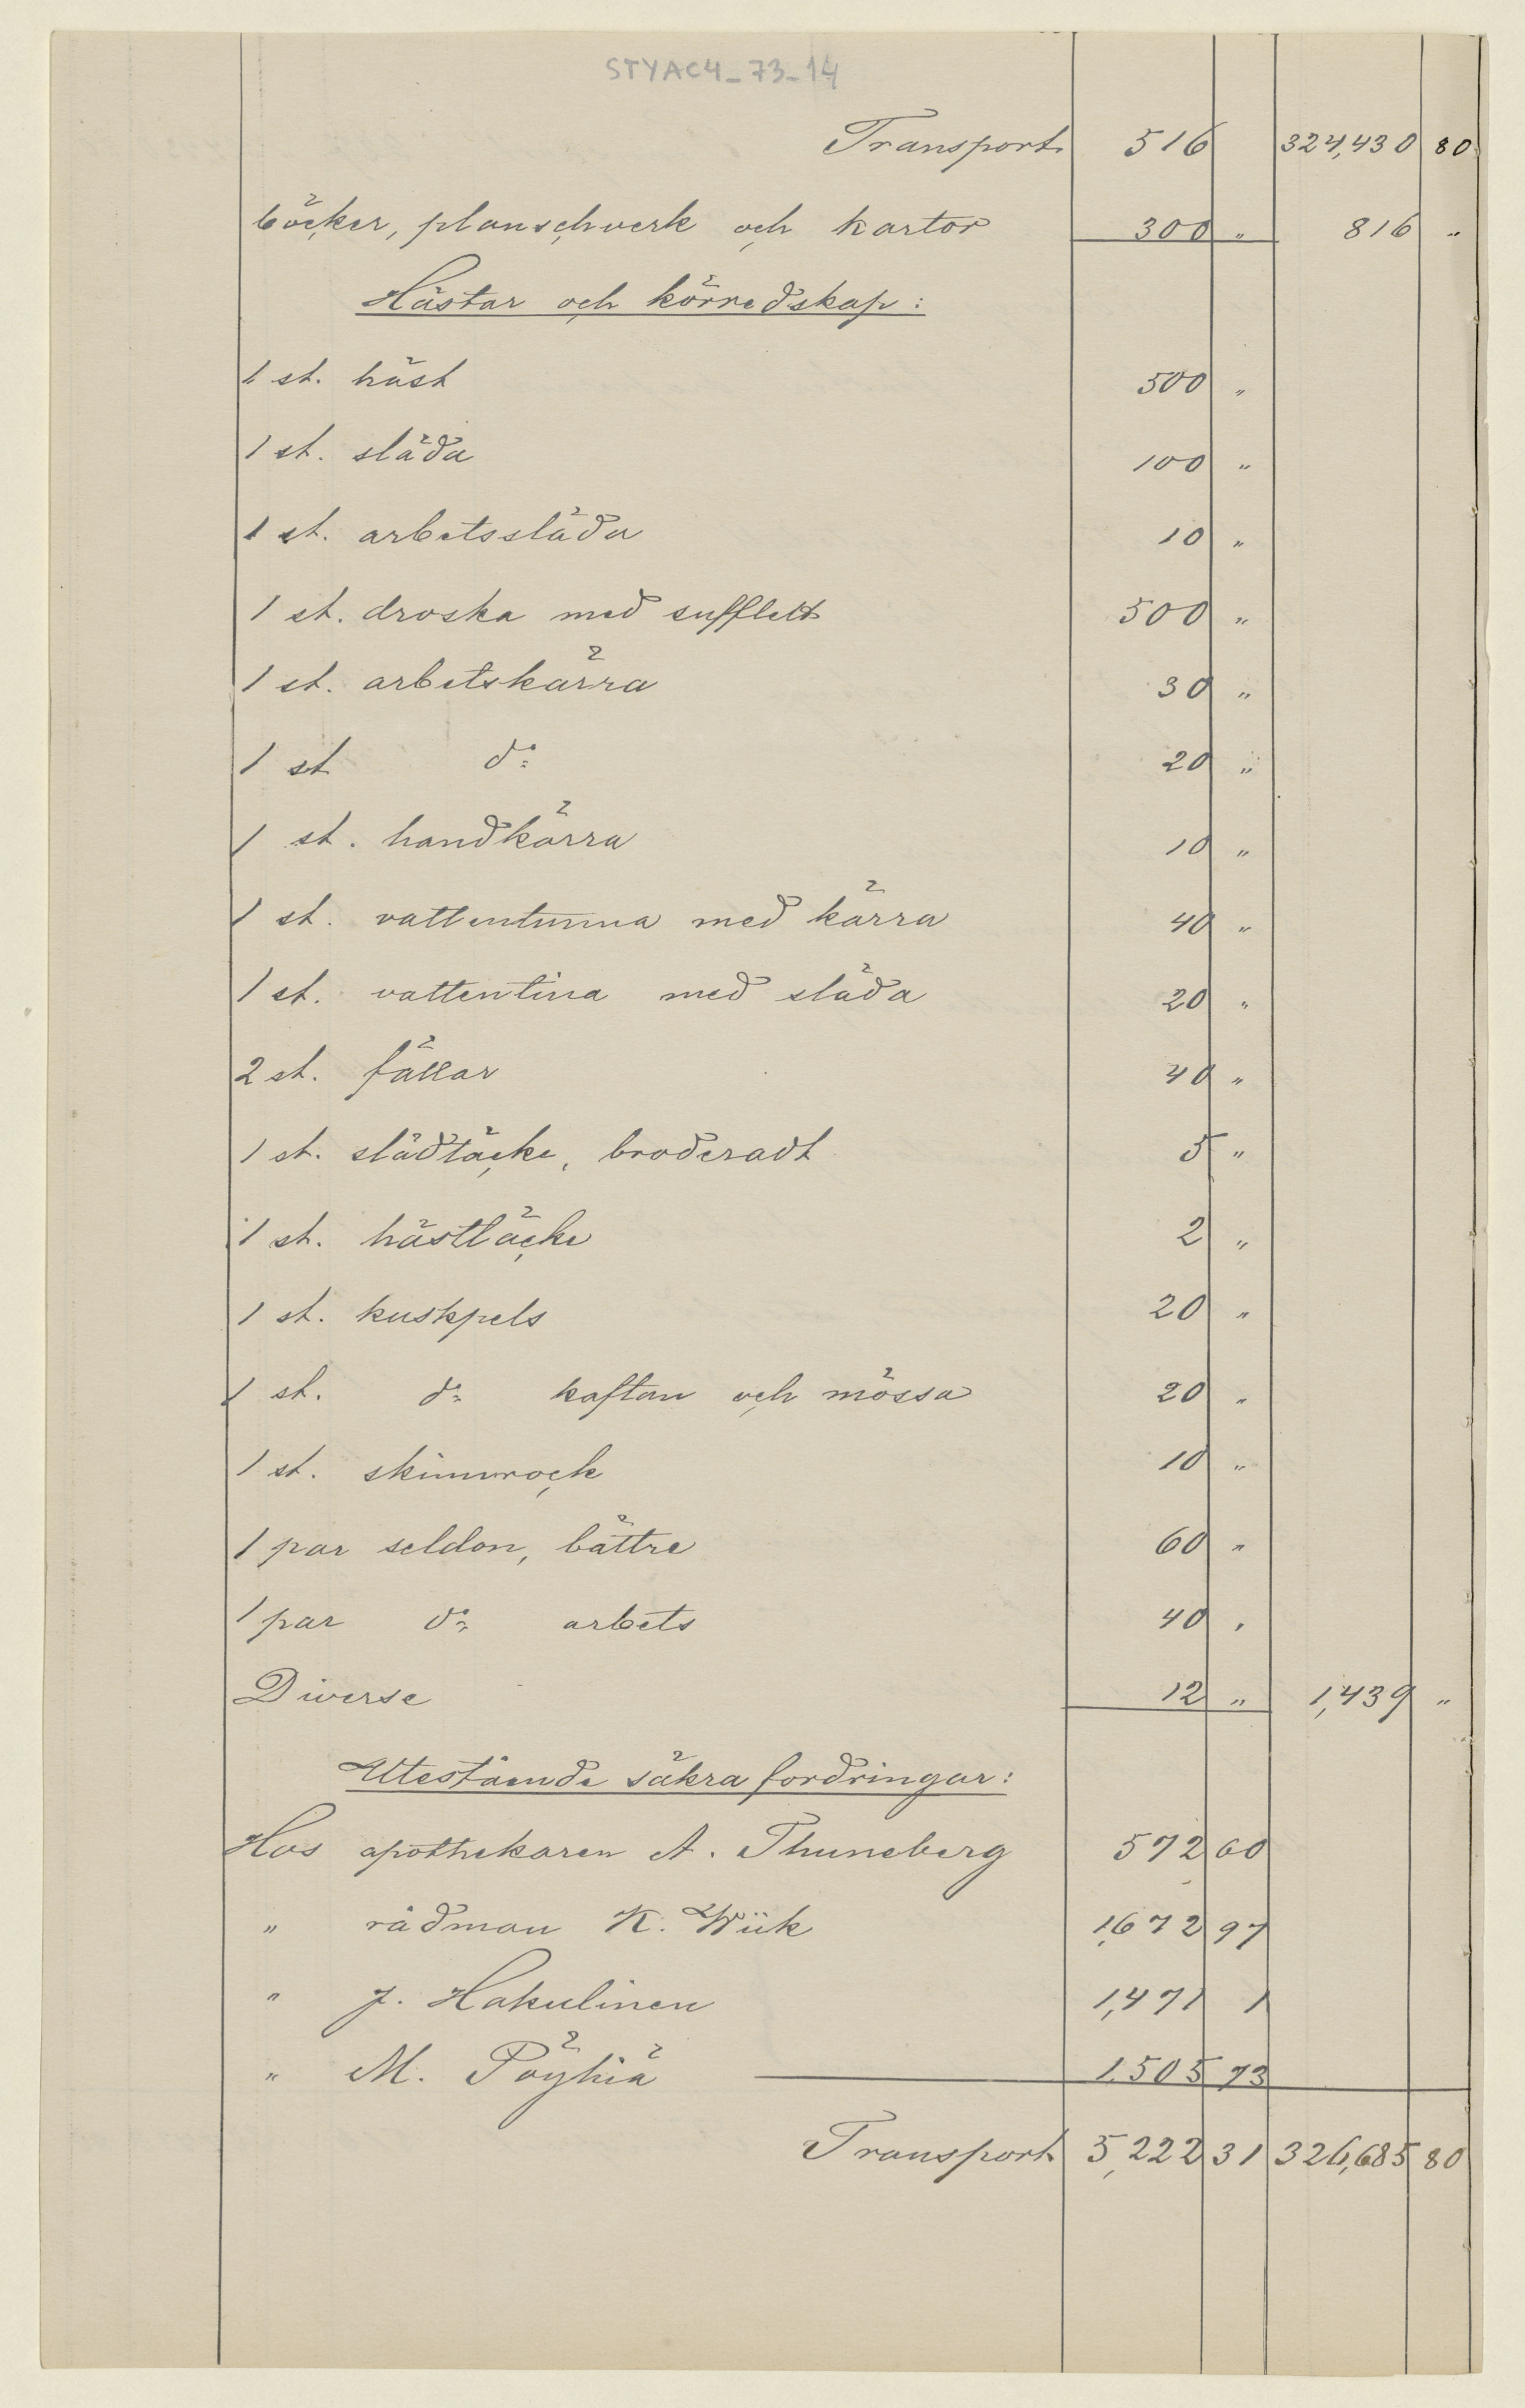 STYAC4_73_14
Transport 516 324,430 80
böcker, planschverk och kartor 300 " 816 "
Hästar och körredskap:
1 st. häst 500 "
1 st. släda 100 "
1 st. arbetssläda 10 "
1 st. droska med sufflett 500 "
1 st. arbetskärra 30 "
1 st do 20 "
1 st. handkärra 10 "
1 st. vattentunna med kärra 40 "
1 st. vattentina med släda 20 "
2 st. fällar 40 "
1 st. slädtäcke, broderadt 5 "
1 st. hästtäcke 2 "
1 st. kuskpels 20 "
1 st. do kaftan och mössa 20 "
1 st. skinnrock 10 "
1 par seldon, bättre 60 "
1 par do arbets 40 "
Diverse 12 " 1,439 "
Utestående säkra fordringar:
Hos apothekaren A. Thuneberg 572 60
" rådman K. Wiik 1,672 97
" J. Hakulinen 1,471 1
" M. Pöyhiä 1,505 73
Transport 5,222 31 326,685 80